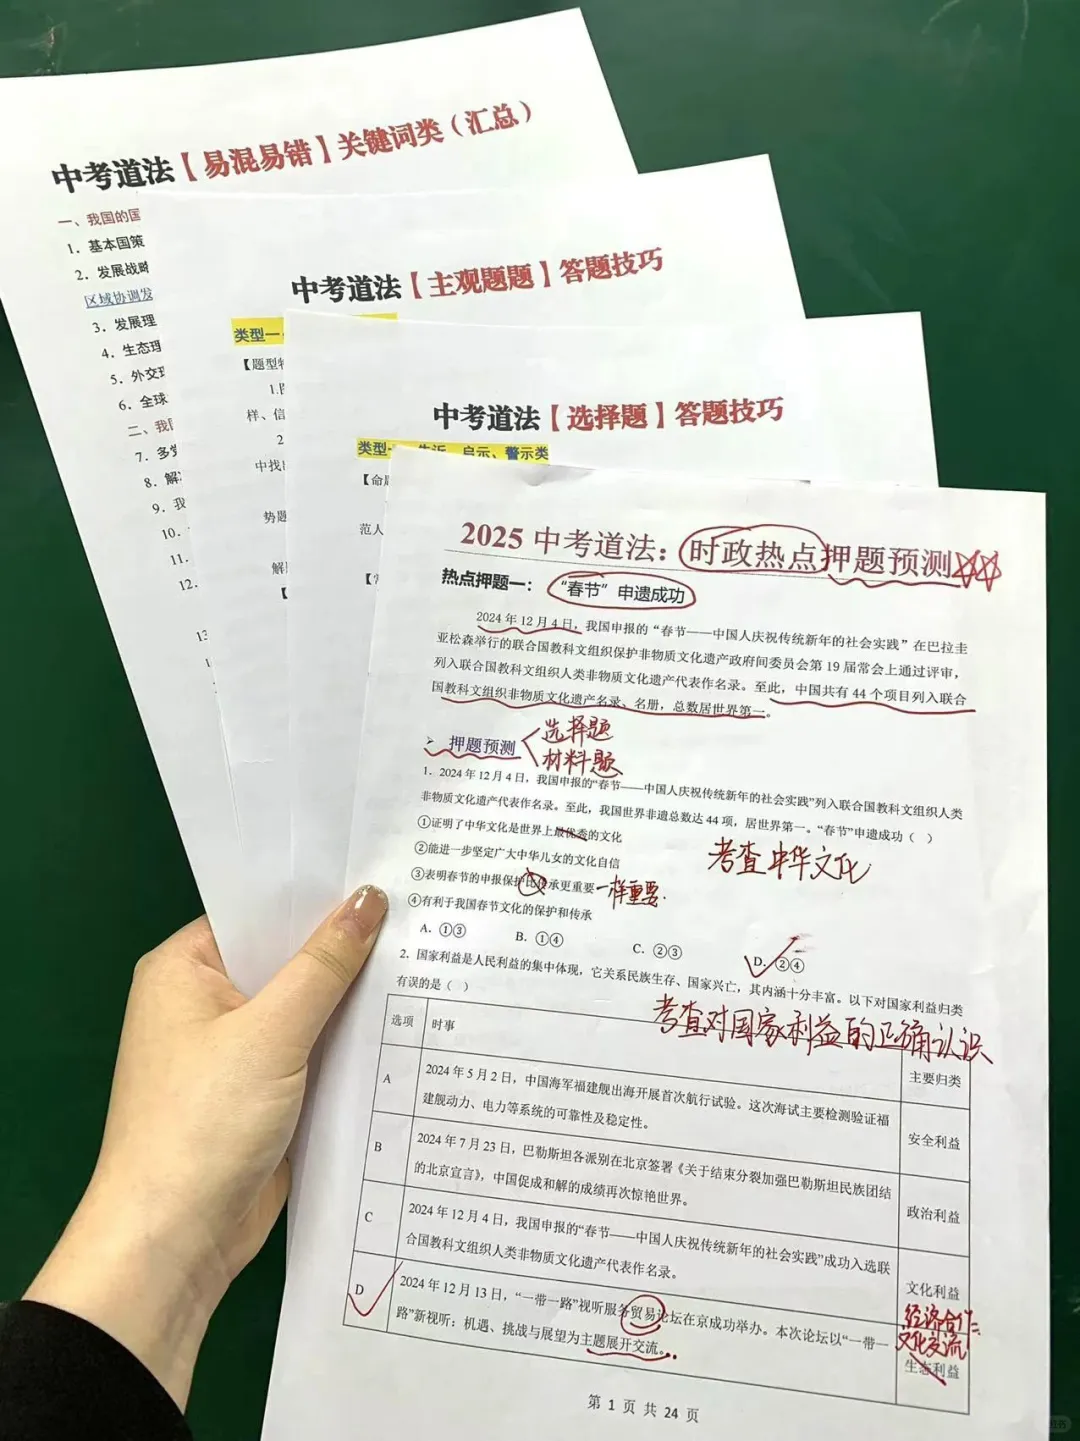 中考道法【易混易错】关键词类（汇总）
一、我国的国
1．基本国策
2．发展战略
区域协调发
3．发展理
4．生态理
5．外交
6．全球
二、我
7．多
8．解
9．我
10．
11．
12．
中考道法【主观题题】答题技巧
类型一
【题型特
样、信
中找
势题
解
中考道法【选择题】答题技巧
启示、警示类
【命题
范人
2025 中考道法：时政热点押题预测
热点押题一：“春节”申遗成功
2024 年 12 月 4 日，我国申报的“春节——中国人庆祝传统新年的社会实践”在巴拉圭
亚松森举行的联合国教科文组织保护非物质文化遗产政府间委员会第 19 届常会上通过评审，
列入联合国教科文组织人类非物质文化遗产代表作名录。至此，中国共有 44 个项目列入联合
国教科文组织非物质文化遗产名录、名册，总数居世界第一。
押题预测
选择题
材料题
1．2024 年 12 月 4 日，我国申报的“春节——中国人庆祝传统新年的社会实践”列入联合国教科文组织人类
非物质文化遗产代表作名录。至此，我国世界非遗总数达 44 项，居世界第一。“春节”申遗成功（ ）
①证明了中华文化是世界上最优秀的文化
②能进一步坚定广大中华儿女的文化自信
考查中华文化
③表明春节的申报保护比传承更重要 一样重要.
④有利于我国春节文化的保护和传承
A．①③ B．①④ C．②③ D．②④
2．国家利益是人民利益的集中体现，它关系民族生存、国家兴亡，其内涵十分丰富。以下对国家利益归类
有误的是（ ）
考查对国家利益的正确认识
选项 时事 主要归类
A 2024 年 5 月 2 日，中国海军福建舰出海开展首次航行试验。这次海试主要检测验证福
建舰动力、电力等系统的可靠性及稳定性。 安全利益
B 2024 年 7 月 23 日，巴勒斯坦各派别在北京签署《关于结束分裂加强巴勒斯坦民族团结
的北京宣言》，中国促成和解的成绩再次惊艳世界。 政治利益
C 2024 年 12 月 4 日，我国申报的“春节——中国人庆祝传统新年的社会实践”成功入选联
合国教科文组织人类非物质文化遗产代表作名录。 文化利益
D 2024 年 12 月 13 日，“一带一路”视听服务贸易论坛在京成功举办。本次论坛以“一带一
路”新视听：机遇、挑战与展望为主题展开交流。 生态利益
经济合作
文化交流
第 1 页 共 24 页